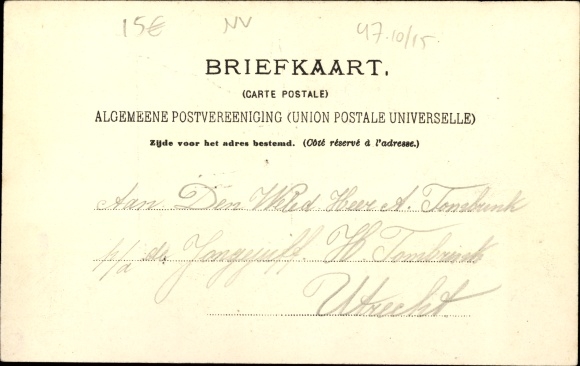 15€ NV 47.10/15.
BRIEFKAART.
(CARTE POSTALE)
ALGEMEENE POSTVEREENIGING (UNION POSTALE UNIVERSELLE)
Zijde voor het adres bestemd. (Côté réservé à l'adresse.)
Aan Den Heer A. Tombrink
p/a de H. Tombrink
Utrecht.